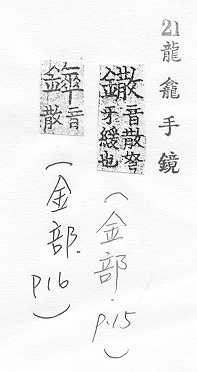 21龍龕手鏡
鏾音散弩牙緩也
(金部.p.15)
音散
(金部.p16)